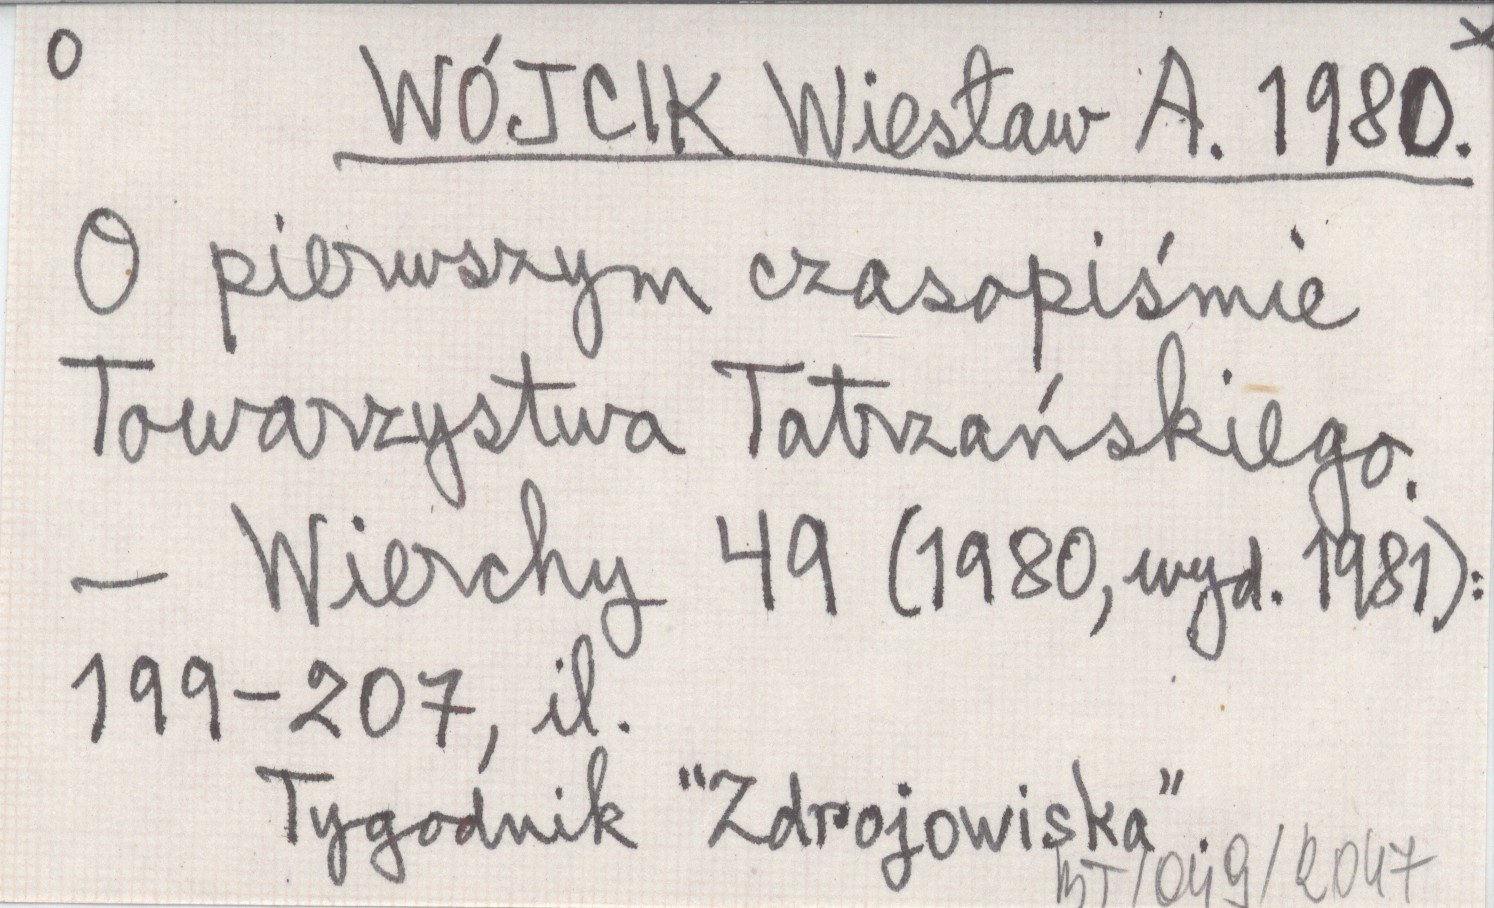 O WÓJCIK Wiesław A. 1980.
O pierwszym czasopiśmie
Towarzystwa Tatrzańskiego.
— Wierchy 49 (1980, wyd. 1981):
199-207, il.
Tygodnik "Zdrojowiska".
BT/049/2047